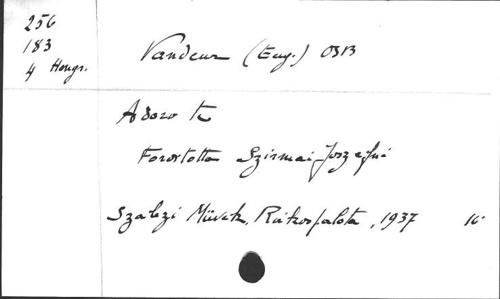 256
183
4 Hongr.
Vandeur (Eug.) OSB
Adoro te
Forostotta Szirmai Jozsefné
Szalézi Müvek, Rákospalota, 1937 16°